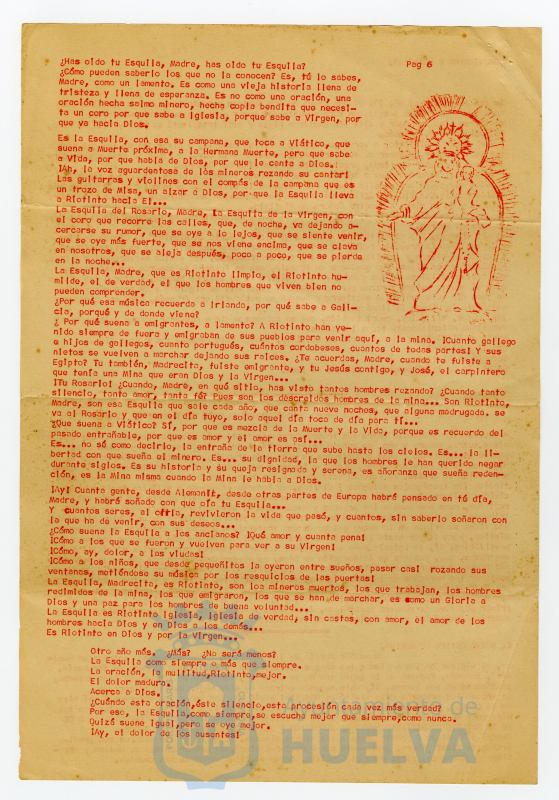 ¿Has oido tu Esquila, Madre, has oido tu Esquila?
Pag 6
¿Cómo pueden saberlo los que no la conocen? Es, tú lo sabes,
Madre, como un lamento. Es como una vieja historia llena de
tristeza y llena de esperanza. Es no como una oración, una
oración hecha salmo minero, hecha copla bendita que necesi-
ta un coro por que sabe a Iglesia, porque sabe a Virgen, por
que va hacia Dios.
Es la Esquila, con esa su campana, que toca a Viático, que
suena a Muerte próxima, a la Hermana Muerte, pero que sabe
a Vida, por que habla de Dios, por que le canta a Dios.
¡Ah, la voz aguardentosa de los mineros rezando su cantar!
Las guitarras y violines con el compás de la campana que es
un trozo de Misa, un alzar a Dios, por que la Esquila lleva
a Riotinto hacia El...
La Esquila del Rosario, Madre, La Esquila de la Virgen, con
el coro que recorre las calles, que, de noche, va dejando a-
cercarse su rumor, que se oye a lo lejos, que se siente venir,
que se oye más fuerte, que se nos viene encima, que se clava
en nosotros, que se aleja después, poco a poco, que se pierde
en la noche...
La Esquila, Madre, que es Riotinto limpio, el Riotinto hu-
milde, el de verdad, el que los hombres que viven bien no
pueden comprender.
¿Por qué esa música recuerda a Irlanda, por qué sabe a Gali-
cia, porqué y de donde viene?
¿ Por qué suena a emigrantes, a lamento? A Riotinto han ve-
nido siempre de fuera y emigraban de sus pueblos para venir aquí, a la mina. ¡Cuanto gallego
e hijos de gallegos, cuanto portugués, cuántos cordobeses, cuantos de todas partes! Y sus
nietos se vuelven a marchar dejando sus raices. ¿Te acuerdas, Madre, cuando te fuiste a
Egipto? Tu también, Madrecita, fuiste emigrante, y tu Jesús contigo, y José, el carpintero
que tenía una Mina que eran Dios y la Virgen...
¡Tu Rosario! ¿Cuando, Madre, en qué sitio, has visto tantos hombres rezando? ¿Cuando tanto
silencio, tanto amor, tanta fé? Pues son los descreidos hombres de la mina... Son Riotinto,
Madre, son esa Esquila que sale cada año, que canta nueve noches, que alguna madrugada. se
va al Rosario y que un el día tuyo, solo aquel día toca de día para tí...
¿Que suena a Viático? Sí, por que es mezcla de la Muerte y la Vida, porque es recuerdo del
pasado entrañable, por que es amor y el amor es así...
Es... no sé como decirlo, la entraña de la tierra que sube hasta los cielos. Es... la li-
bertad con que sueña el minero. Es... su dignidad, la que los hombres le han querido negar
durante siglos. Es su historia y su queja resignada y serena, es añoranza que sueña reden-
ción, es la Mina misma cuando la Mina le habla a Dios.
¡Ay! Cuanta gente, desde Alemania, desde otras partes de Europa habrá pensado en tú día,
Madre, y habrá soñado con que oía tu Esquila...
Y cuantos seres, al oirla, revivieron la vida que pasó, y cuantos, sin saberlo soñaron con
la que ha de venir, con sus deseos...
¿Cómo suena la Esquila a los ancianos? ¡Qué amor y cuanta pena!
¡Cómo a los que se fueron y vuelven para ver a su Virgen!
¡Cómo, ay, dolor, a las viudas!
¡Cómo a los niños, que desde pequeñitos la oyeron entre sueños, pasar casi rozando sus
ventanas, metiéndose su música por los resquicios de las puertas!
La Esquila, Madrecita, es Riotinto, son los mineros muertos, los que trabajan, los hombres
redimidos de la mina, los que emigraron, los que se han de marchar, es como un Gloria a
Dios y una paz para los hombres de buena voluntad...
La Esquila es Riotinto Iglesia, Iglesia de verdad, sin castas, con amor, el amor de los
hombres hacia Dios y en Dios a los demás...
Es Riotinto en Dios y por la Virgen...
Otro año más. ¿Más? ¿No será menos?
La Esquila como siempre o más que siempre.
La oración, la multitud,Riotinto,mejor.
El dolor madura.
Acerca a Dios.
¿Cuándo esta oración,éste silencio,esta procesión cada vez más verdad?
Por eso, la Esquila,como siempre,se escucha mejor que siempre,como nunca.
Quizá suene igual,pero se oye mejor.
¡Ay, el dolor de los ausentes!
Ayuntamiento de
HUELVA